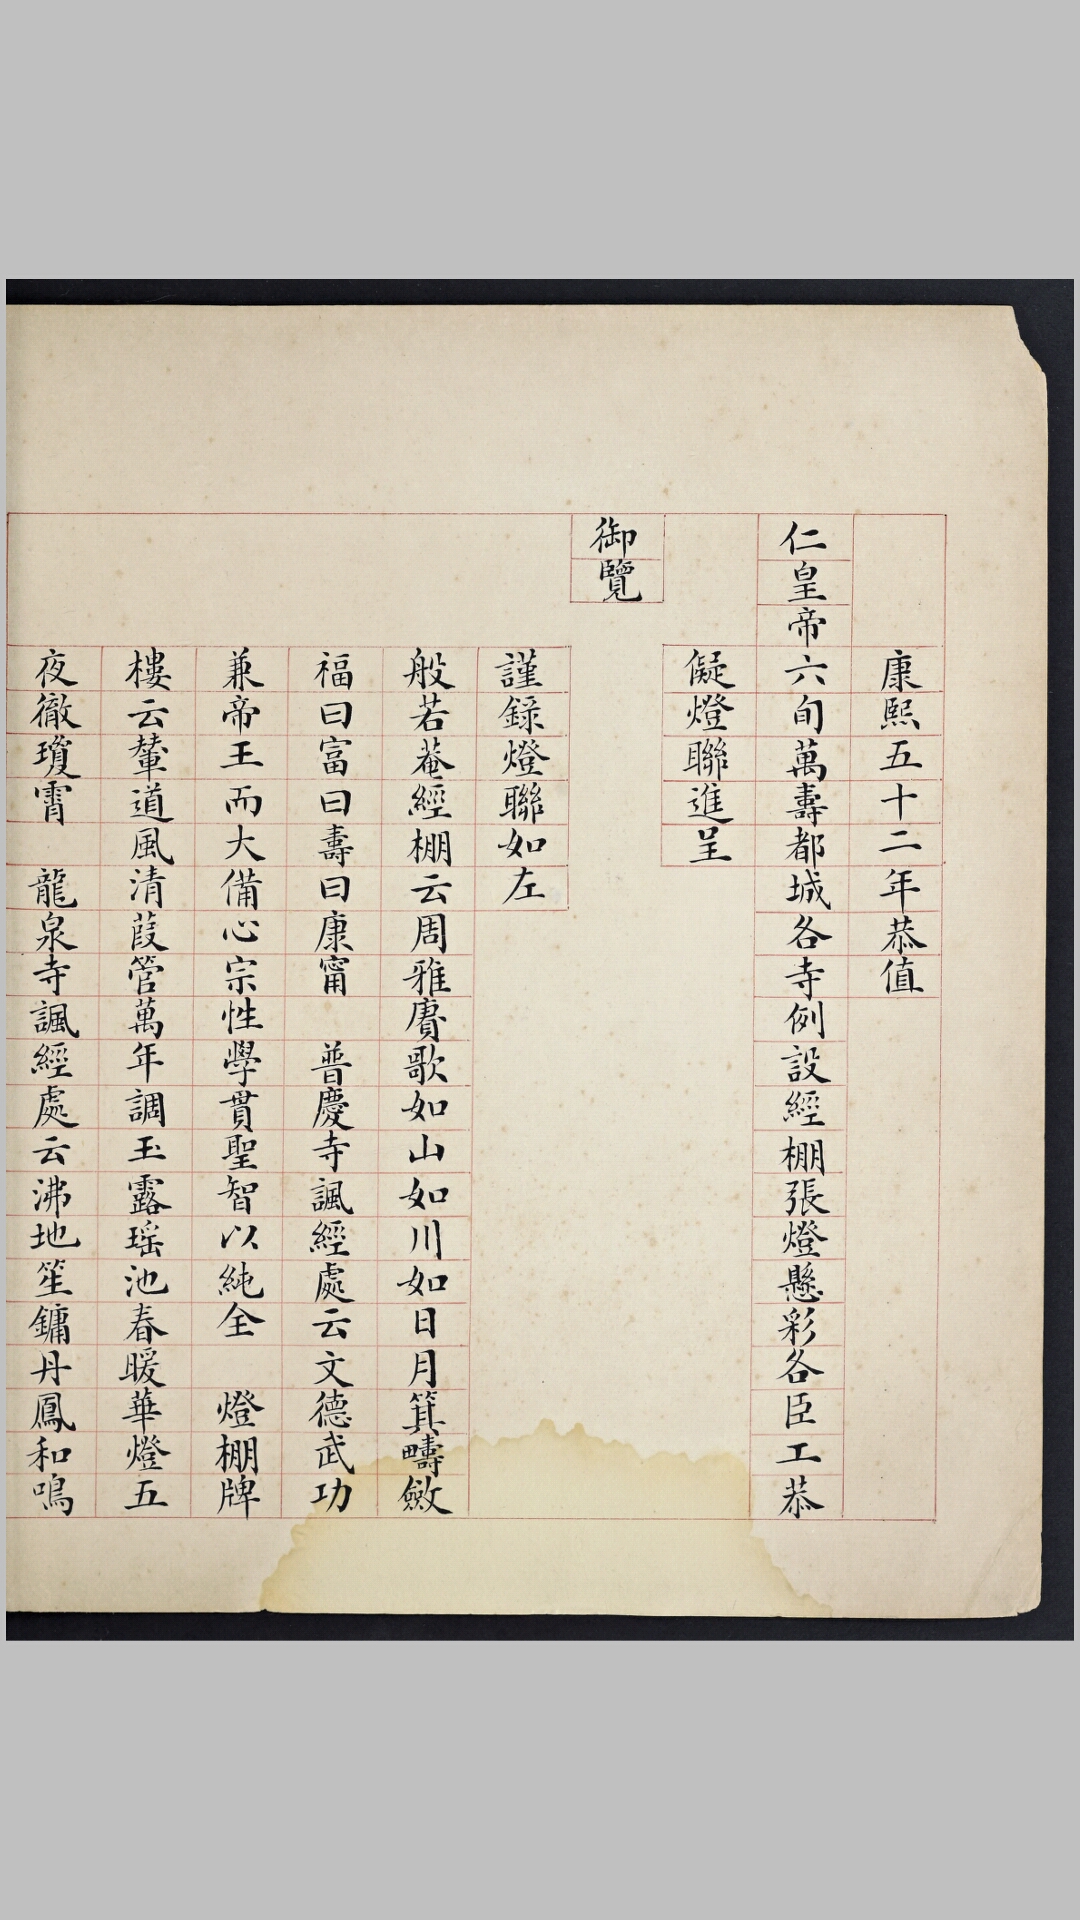 康熙五十二年恭值
仁皇帝六旬萬壽都城各寺例設經棚張燈懸彩各臣工恭
儗燈聯進呈
御覽
謹錄燈聯如左
般若菴經棚云周雅賡歌如山如川如日月箕疇斂
福曰富曰壽曰康甯　普慶寺諷經處云文德武功
兼帝王而大備心宗性學貫聖智以純全　燈棚牌
樓云輦道風清葭管萬年調玉露瑶池春暖華燈五
夜徹瓊霄　龍泉寺諷經處云沸地笙鏞丹鳳和鳴